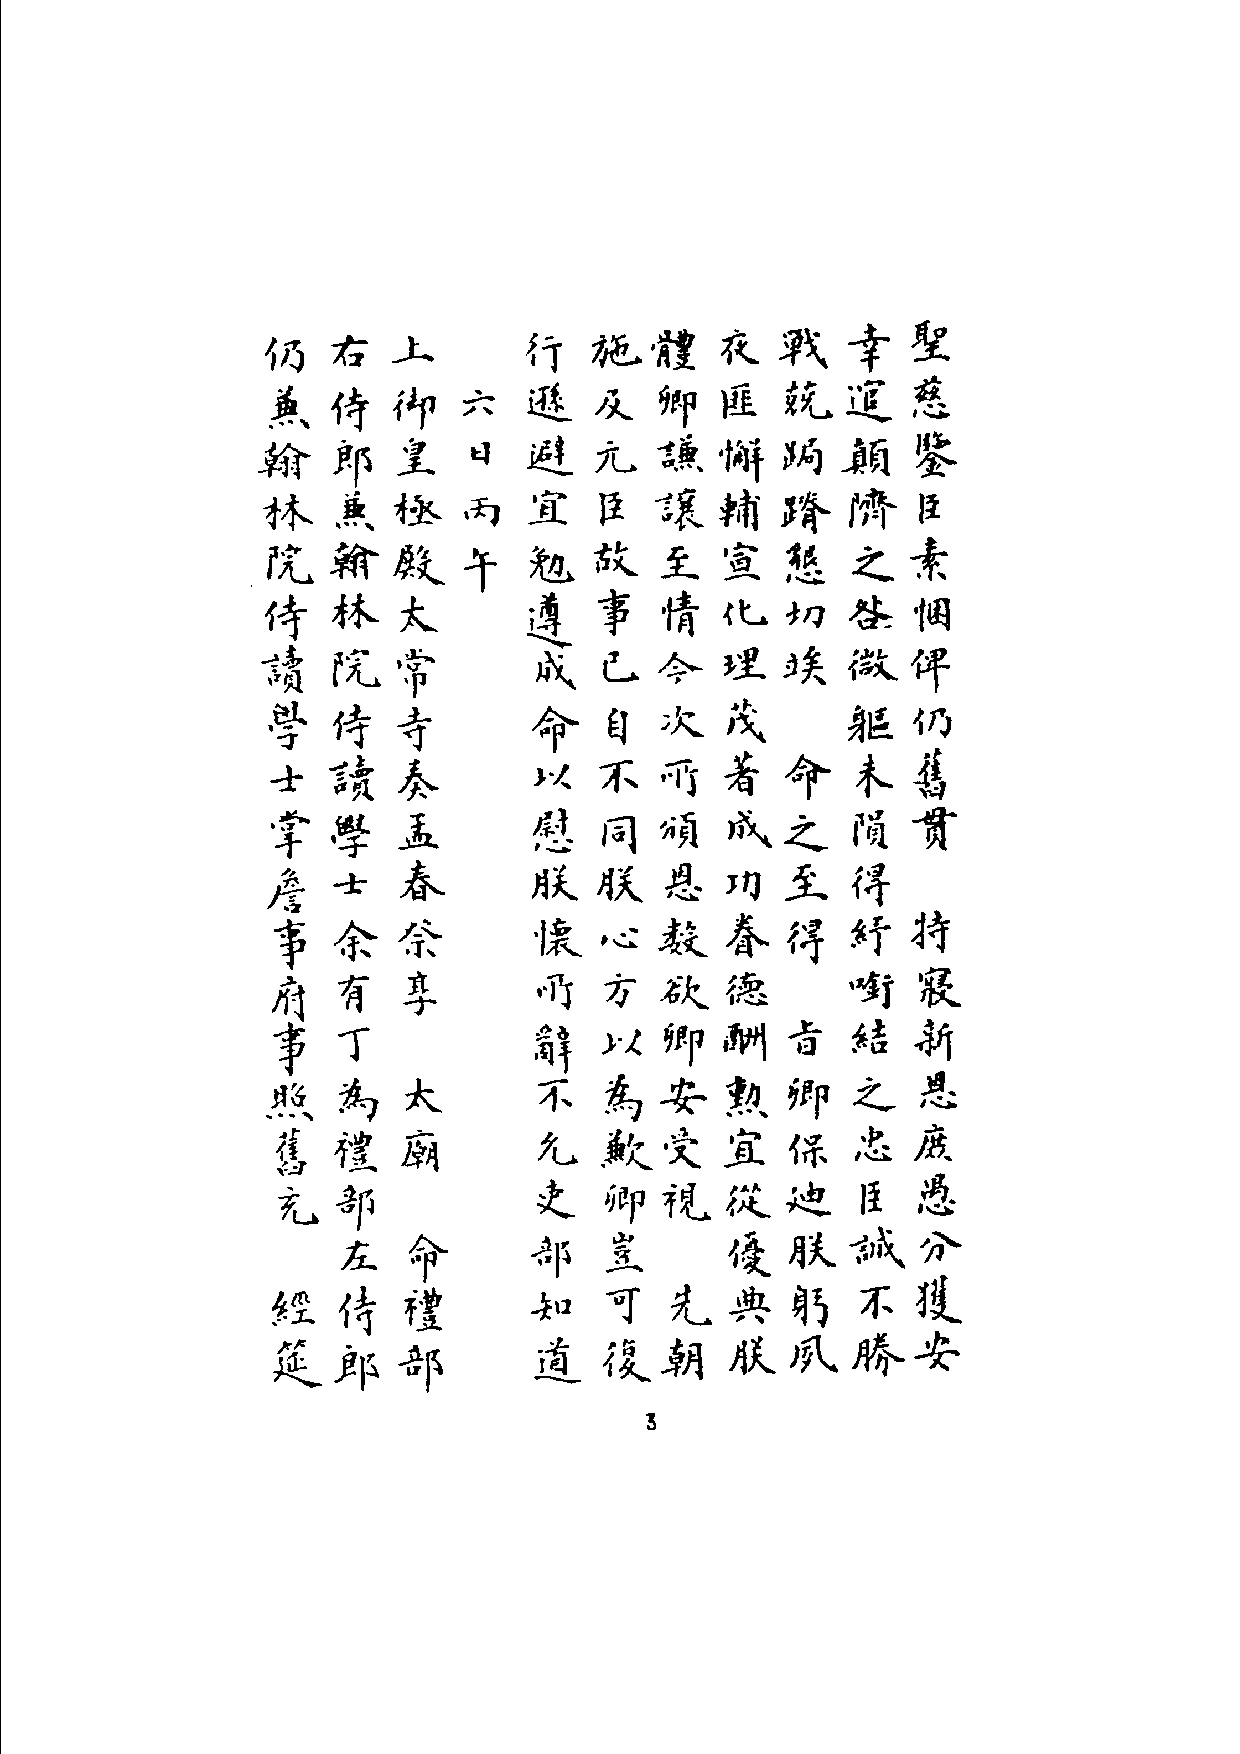 聖慈鑒臣素悃俾仍舊貫　特寢新恩庶愚分獲安
幸逭顛隮之咎微軀未隕得紓啣結之忠臣誠不勝
戰兢跼蹐懇切竢　命之至得　旨卿保迪朕躬夙
夜匪懈輔宣化理茂著成功眷德酬勲宜從優典朕
體卿謙讓至情今次所頒恩數欲卿安受視　先朝
施及元臣故事已自不同朕心方以為歉卿豈可復
行遜避宜勉遵成命以慰朕懷所辭不允吏部知道
六日丙午
上御皇極殿太常寺奏孟春祭享　太廟　命禮部
右侍郎兼翰林院侍讀學士余有丁為禮部左侍郎
仍兼翰林院侍讀學士掌詹事府事照舊充　經筵
3